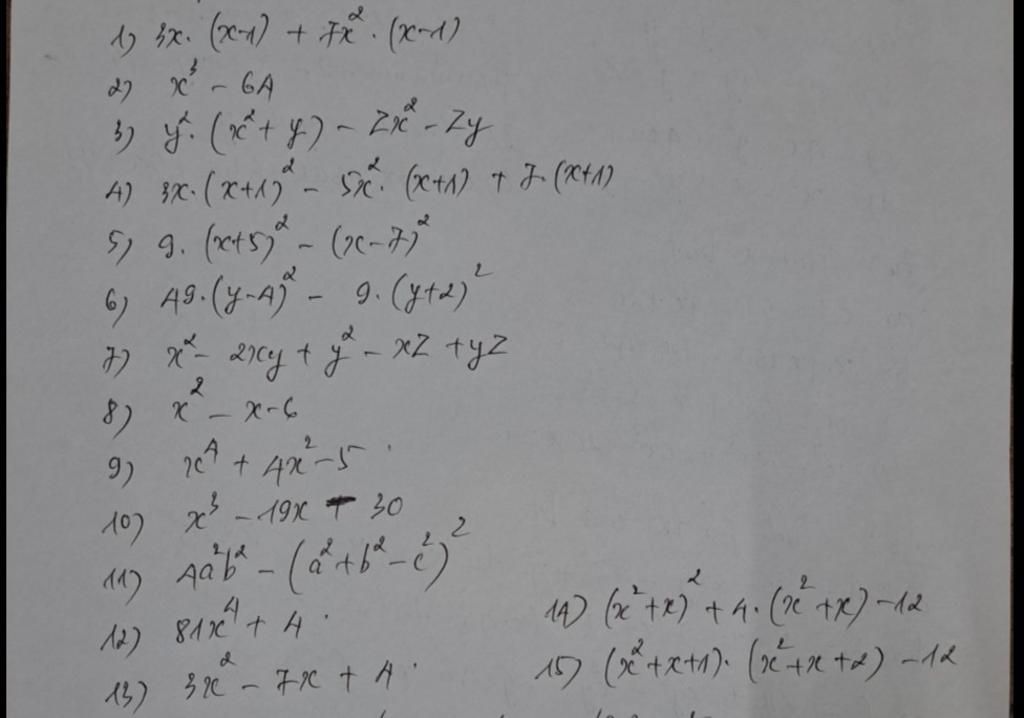 1) 3x. (x-1) + 7x². (x-1)
2) x³ - 64
3) y². (x² + y) - zx² - zy
4) 3x. (x+1)² - 5x². (x+1) + 7. (x+1)
5) 9. (x+5)² - (x-7)²
6) 49. (y-4)² - 9. (y+2)²
7) x² - 2xy + y² - xz + yz
8) x² - x - 6
9) x⁴ + 4x² - 5
10) x³ - 19x + 30
11) 4a²b² - (a² + b² - c²)²
12) 81x⁴ + 4
13) 3x² - 7x + 4
14) (x² + x)² + 4. (x² + x) - 12
15) (x² + x + 1). (x² + x + 2) - 12